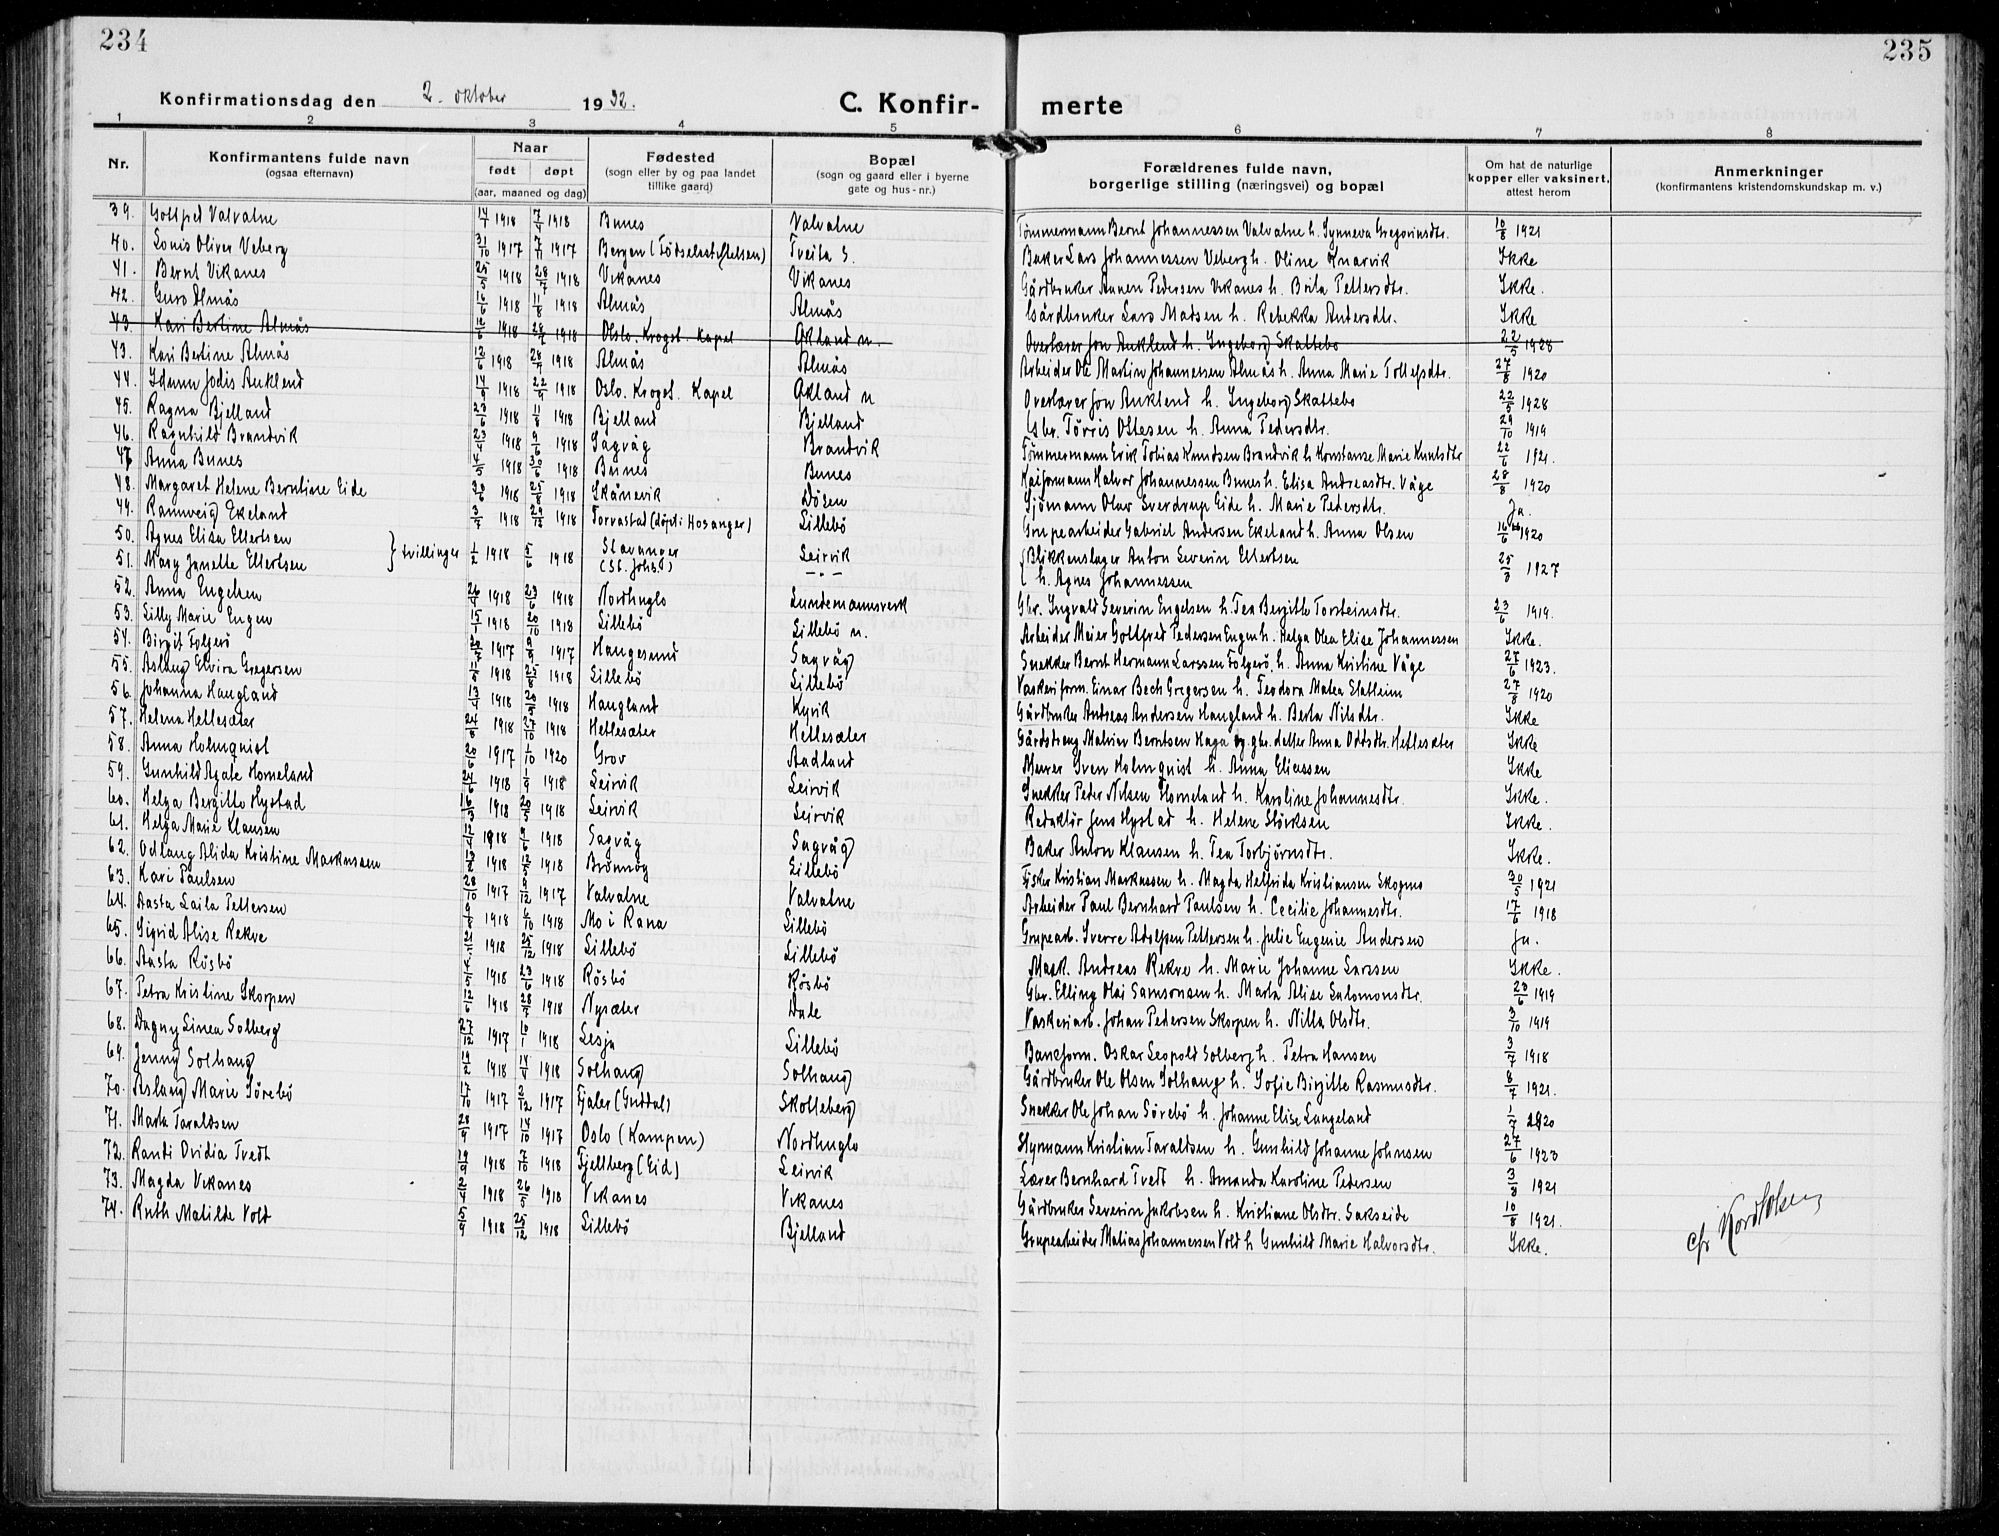 234
235
Konfirmationsdag den 2. oktober 1932.
C. Konfirmerte
1 2 3 4 5 6 7 8
Nr. Konfirmantens fulde navn (ogsaa efternavn) Naar født døpt (aar, maaned og dag) Fødested (sogn eller by og paa landet tillike gaard) Bopæl (sogn og gaard eller i byerne gate og hus-nr.) Forældrenes fulde navn, borgerlige stilling (næringsvei) og bopæl Om hat de naturlige kopper eller vaksinert, attest herom Anmerkninger (konfirmantens kristendomskundskap m. v.)
39. Gottfred Valvatne 14/1 1918 7/4 1918 Bunes Valvatne Tømmermann Bernt Johannessen Valvatne h. Synneva Gregoriusdtr. 10/8 1921
40. Louis Oliver Veberg 31/10 1917 7/11 1917 Bergen (Fødselsstiftelsen) Tveita S. Baker Lars Johannessen Veberg h. Oline Knarvik Ikke
41. Bernt Vikanes 25/5 1918 28/7 1918 Vikanes Vikanes Gårdbruker Annen Pedersen Vikanes h. Brita Pettersdtr. Ikke.
42. Guro Almås 16/6 1918 11/8 1918 Almås Almås Gårdbruker Lars Matsen h. Rebekka Andersdtr. Ikke
43. Kari Bertine Almås 12/6 1918 28/7 1918 Oslo. Krogst. Kapel Økland n. Overlærer Jon Auklend h. Ingeborg Skattebo 22/5 1928
43. Kari Bertine Almås 12/6 1918 28/7 1918 Almås Almås Arbeider Ole Martin Johannessen Almås h. Anna Marie Tollefsdtr. 27/8 1920
44. Idunn Jodis Auklend 14/9 1918 22/9 1918 Oslo. Krogst. Kapel Økland n Overlærer Jon Auklend h. Ingeborg Skattebo 22/5 1928
45. Ragna Bjelland 23/6 1918 11/8 1918 Bjelland Bjelland Gbr. Tørris Ottesen h. Anna Pedersdtr. 29/10 1919
46. Ragnhild Brandvik 23/4 1918 9/6 1918 Sagvåg Brandvik Tømmermann Erik Tobias Knudsen Brandvik h. Konstanse Marie Knutsdtr 22/6 1921.
47 Anna Bunes 4/5 1918 30/6 1918 Bunes Bunes Kaiformann Halvor Johannessen Bunes h. Elisa Andreasdtr. Våge 28/8 1920
48. Margaret Helene Berntine Eide 30/6 1918 25/8 1918 Skånevik Døsen Sjømann Olav Sverdrup Eide h. Marie Pedersdtr. Ja.
49. Rannveig Ekeland 3/7 1918 29/12 1918 Torvastad (døpt i Hosanger) Lillebø Grupearbeider Gabriel Andersen Ekeland h. Anna Olsen 16/6 1920
50. Agnes Elisa Ellertsen } tvillinger 1/2 1918 5/6 1918 Stavanger (St. Johs.) Leirvik { Blikkenslager Anton Severin Ellertsen 25/8 1927
51. Mary Janette Ellertsen — " — h. Agnes Johannessen
52. Anna Engelsen 26/4 1918 23/6 1918 Nordhuglo Lundemannsverk Gbr. Ingvald Severin Engelsen h. Tea Bergitte Torsteinsdtr. 23/6 1919.
53. Lilly Marie Engen 15/1 1918 20/10 1918 Lillebø Lillebø n. Arbeider Meier Gottfred Pedersen Engen h. Helga Olea Elise Johannessen Ikke.
54. Birgit Folgerø 20/7 1917 9/9 1917 Haugesund Sagvåg Snekker Bernt Hermann Larssen Folgerø. h. Anna Kristine Våge 27/6 1923.
55. Aslaug Elvira Gregersen 11/5 1918 25/8 1918 Lillebø Lillebø Vaskeriform. Einar Bech Gregersen h. Teodora Matea Sletheim 27/8 1920
56. Johanna Haugland 13/4 1918 20/5 1918 Haugland Kyvik Gårdbruker Andreas Andersen Haugland h. Berta Nilsdtr. Ikke
57. Helena Hetlesæter 24/8 1918 27/10 1918 Hetlesæter Hetlesæter Gårdsdreng Malvin Berntsen Haga og gbr. datter Anna Oddsdtr. Hetlesæter Ikke
58. Anna Holmquist 20/6 1917 1/10 1920 Grov Aadland Murer Sven Holmquist h. Anna Eliassen Ikke
59. Gunhild Agate Horneland 24/6 1918 1/9 1918 Leirvik Leirvik Snekker Peder Nilsen Horneland h. Karoline Johannesdtr. Ikke.
60. Helga Bergitte Hystad 16/3 1918 20/5 1918 Leirvik Leirvik Redaktør Jens Hystad h. Helene Størksen Ikke.
61. Helga Marie Klausen 12/4 1918 9/6 1918 Sagvåg Sagvåg Baker Anton Klausen h. Tea Torbjørnsdtr. Ikke.
62. Odlaug Alida Kristine Markussen 13/2 1918 12/5 1918 Brønnøy Lillebø Fisker Kristian Markussen h. Magda Helfrida Kristiansen Skogmo 30/5 1921
63. Kari Paulsen 28/10 1917 9/12 1917 Valvatne Valvatne Arbeider Paul Bernhard Paulsen h. Cecilie Johannesdtr. 17/6 1918
64. Aasta Laila Pettersen 9/8 1918 6/10 1918 Mo i Rana Lillebø Grupearb. Sverre Adolfsen Pettersen h. Julie Eugenie Andersen Ja.
65. Sigrid Alise Rekve 21/ 1918 25/12 1918 Lillebø Lillebø Mask. Andreas Rekve h. Marie Johanne Larssen Ikke.
66. Aasta Røsbø 4/5 1918 23/6 1918 Røsbø Røsbø Gbr. Elling Olai Samsonsen h. Marta Alise Salomonsdtr. 23/6 1919
67. Petra Kristine Skorpen 12/6 1918 28/7 1918 Nysæter Dale Vaskeriarb. Johan Pedersen Skorpen h. Nilla Olsdtr. 3/10 1919
68. Dagny Linea Solberg 27/12 1917 10/1 1918 Lesja Lillebø Baneform. Oskar Leopold Solberg h. Petra Hansen 3/7 1918
69. Jenny Solhaug 19/2 1918 14/4 1918 Solhaug Solhaug Gårdbruker Ole Olsen Solhaug h. Sofie Birgitte Rasmusdtr. 8/7 1921.
70. Aslaug Marie Sörebø 17/10 1917 2/12 1917 Fjaler (Guddal) Skotteberg Snekker Ole Johan Sörebø h. Johanne Elise Langeland 1/7 1920
71. Marta Taraldsen 28/9 1917 14/10 1917 Oslo (Kampen) Nordhuglo Styrmann Kristian Taraldsen h. Gunhild Johanne Johnsen 27/6 1923
72. Randi Ovidia Tvedt 19/9 1918 7/10 1918 Fjellberg (Eid) Leirvik Lærer Bernhard Tvedt h. Amanda Karoline Pedersen 3/8 1921
73. Magda Vikanes 2/4 1918 26/5 1918 Vikanes Vikanes Gårdbruker Severin Jakobsen h. Kristiane Olsdtr. Sakseide 10/8 1921.
74. Ruth Matilde Vold 5/9 1918 25/12 1918 Lillebø Bjelland Grupearbeider Matias Johannessen Vold h Gunhild Marie Halvorsdtr. Ikke.